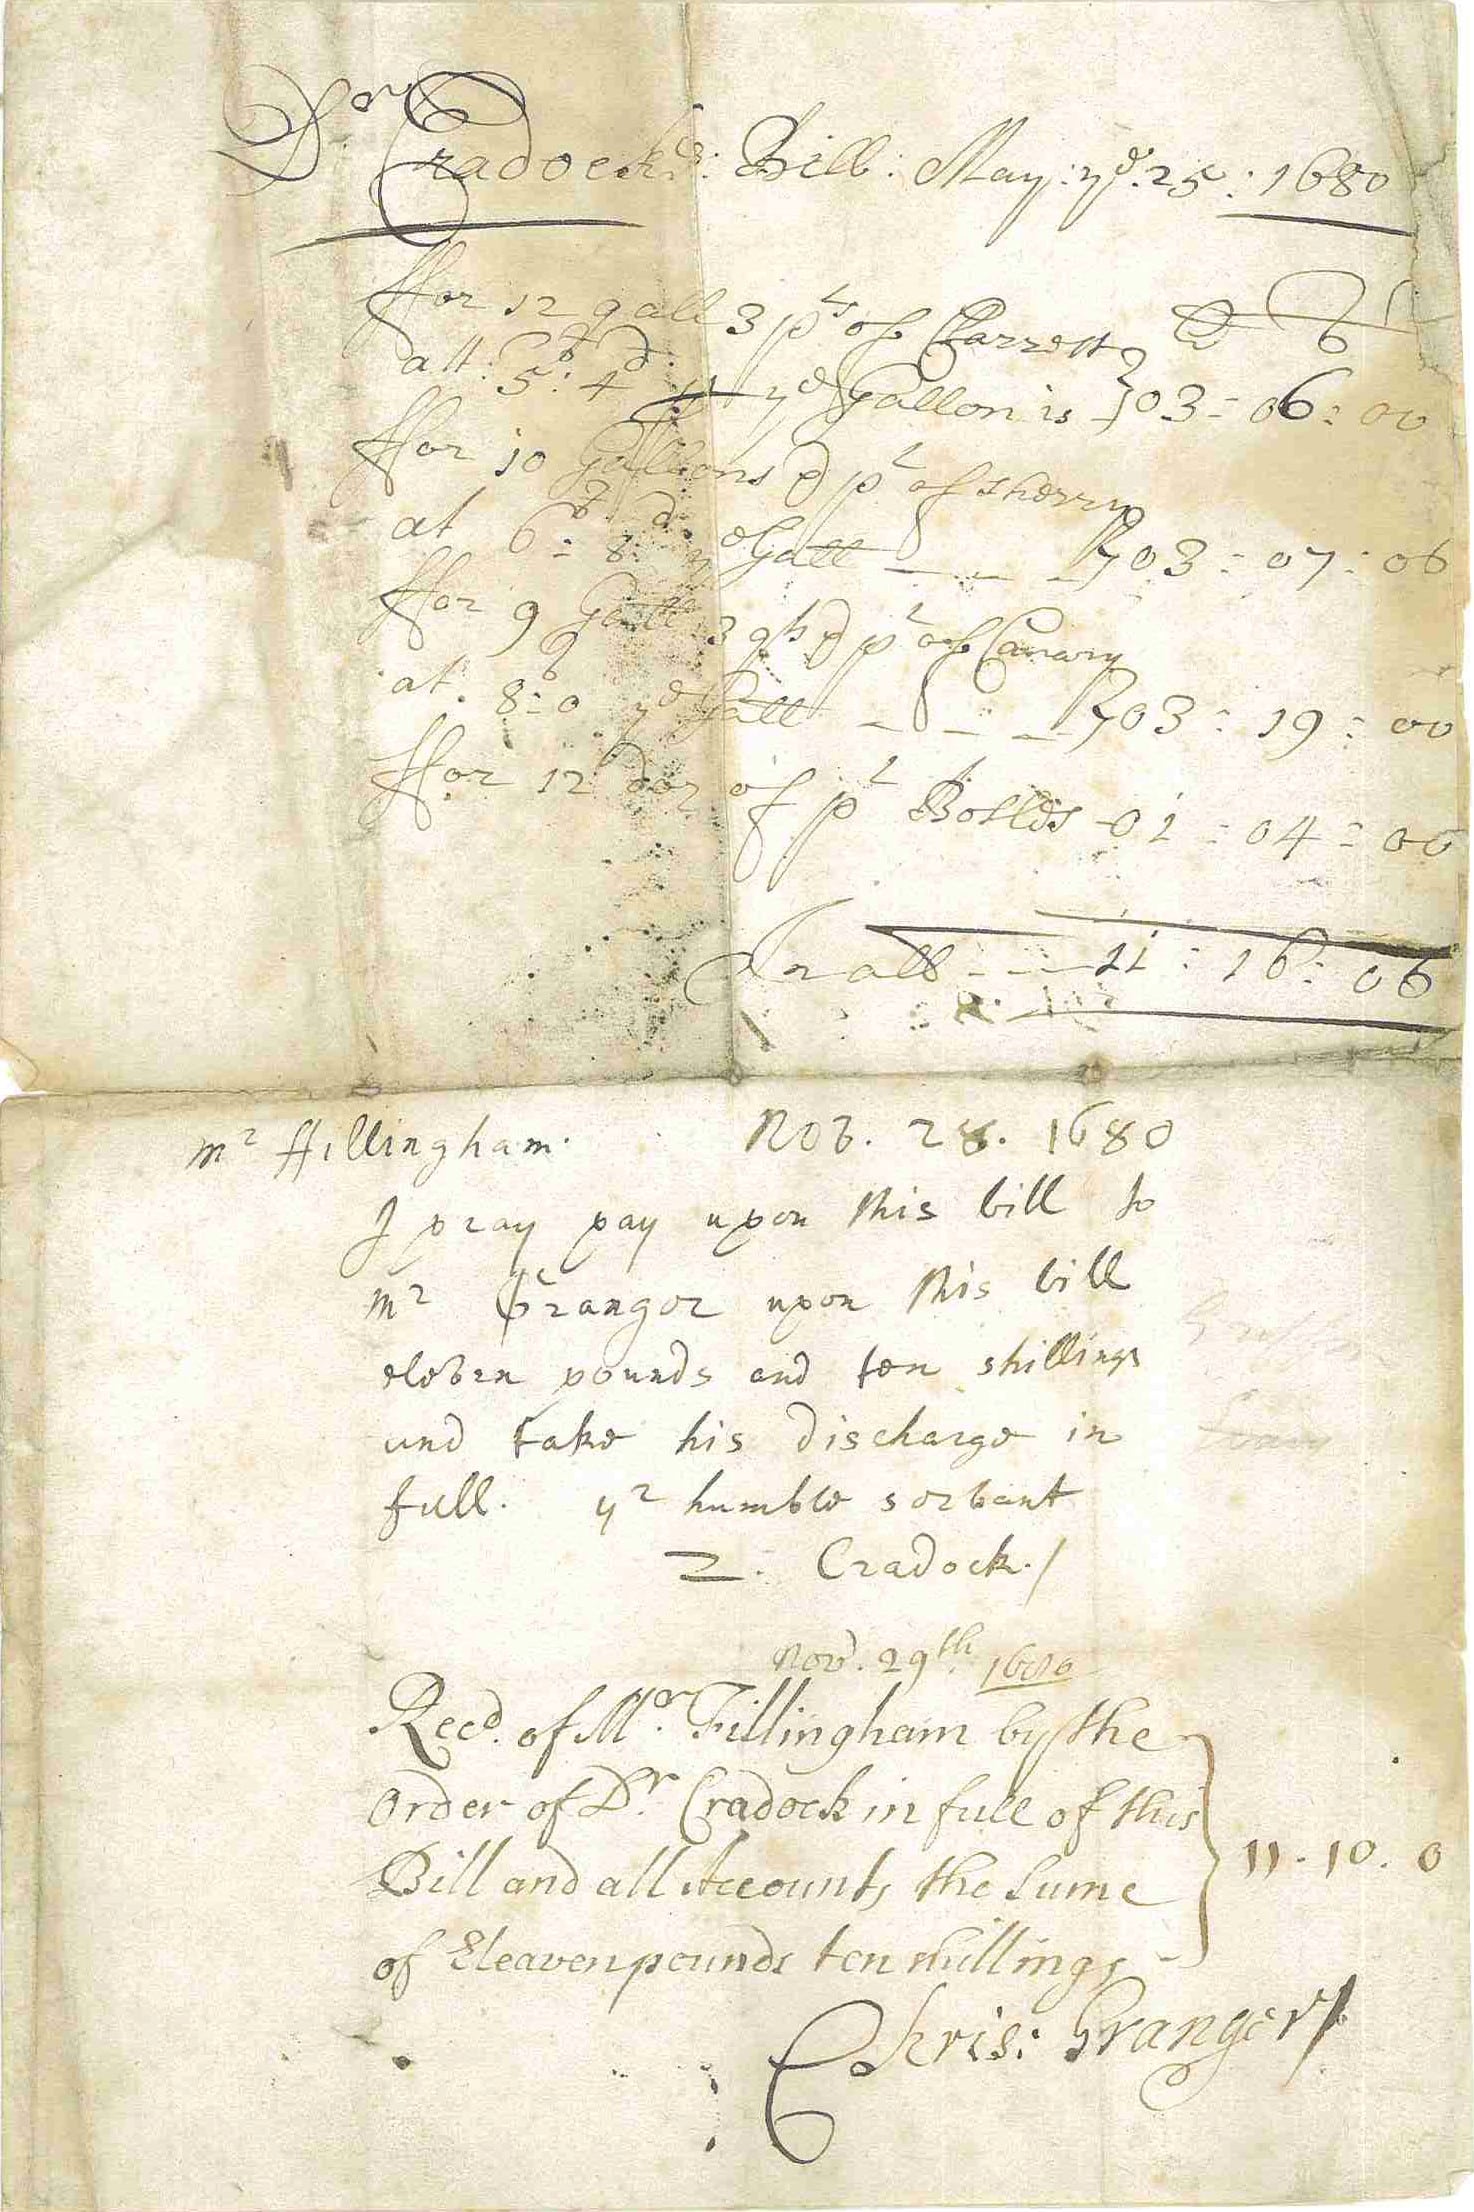 Dr Cradocks: Bill: May: ye: 25: 1680
ffor 12 gall 3 pts of Clarrett
att: 5s: 4d p ye Gallon is } 03 = 06 = 00
ffor 10 Gallons d pt of Sherry
at 6s = 8d ye Gall - - - } 03 = 07 = 06
ffor 9 Gall 3 qts d pt of Canary
at 8s = 0 ye Gall - - - } 03 = 19 = 00
ffor 12 doz of pt Bottles - 01 = 04 = 00
In all - - - 11 = 16 = 06
mr ffillingham. Nov. 28. 1680
I pray pay upon this bill to
mr Granger upon this bill
eleven pounds and ten shillings
and take his discharge in
full. yr humble servant
Z. Cradock./
Nov. 29th. 1680
Recd. of Mr. Fillingham by the
Order of Dr. Cradock in full of this
Bill and all Accounts the Sume } 11 - 10 . 0
of Eleaven pounds ten shillings
Chris: Granger